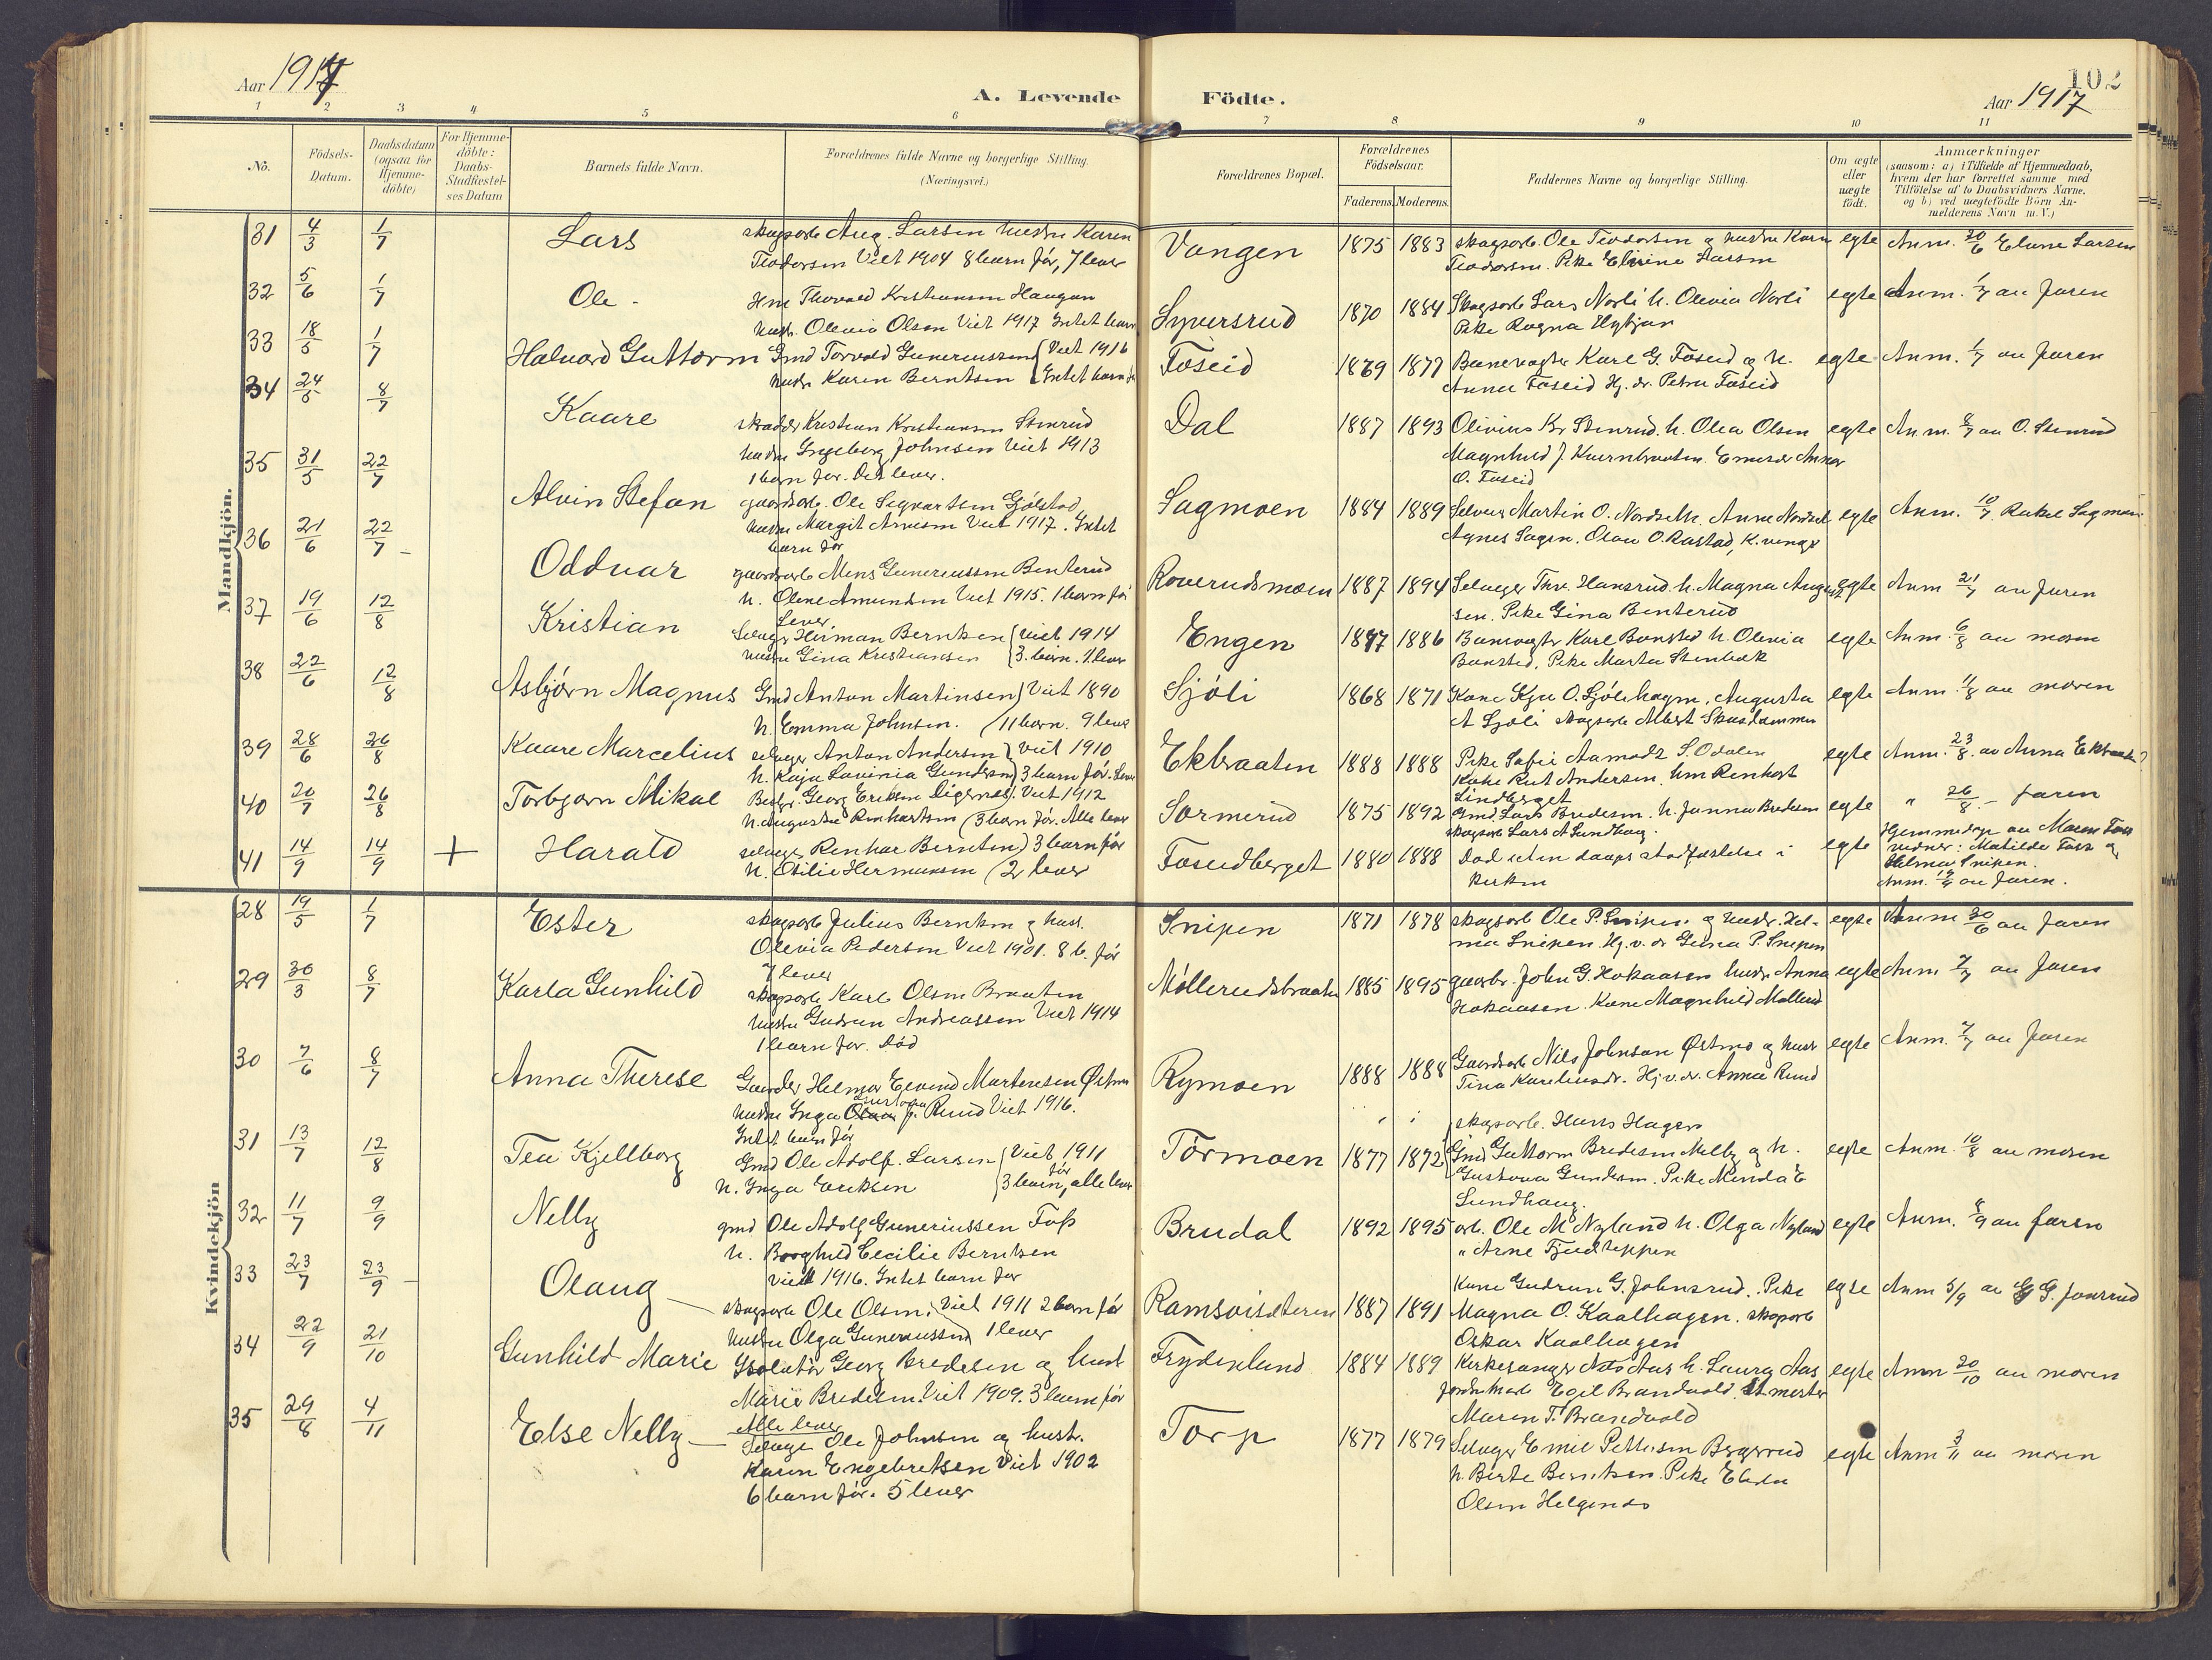 Aar 1917
A. Levende Födte.
102
Aar 1917
1 2 3 4 5 6 7 8 9 10 11
No.
Födsels-Datum.
Daabsdatum (ogsaa for Hjemme-döbte)
For Hjemme-döbte: Daabs-Stadfæstel-ses Datum
Barnets fulde Navn.
Forældrenes fulde Navne og borgerlige Stilling. (Næringsvei.)
Forældrenes Bopæl.
Forældrenes Födselsaar.
Faderens. Moderens.
Faddernes Navne og borgerlige Stilling.
Om ægte eller uægte födt.
Anmærkninger
(saasom: a) i Tilfælde af Hjemmedaab,
hvem der har forrettet samme med
Tilföielse af to Daabsvidners Navne.
og b) ved uegtefödte Börn An-
melderens Navn m. V.)
Mandkjön.
31 4/3 1/7 Lars
skogsarb Aug. Larsen hustru Karen
Teodorsen Viet 1904 8 barn för, 7 lever
Vangen 1875 1883
skogsarb. Ole Teodorsen og hustru Karn
Teodorsen. Pike Larsen
egte Anm. 30/6 Larsen
32 5/6 1/7 Ole -
Thorvald Kristiansen Haugen
hustr. Olevia Olsen Viet 1917 Intet barn
Syversrud 1870 1884
Skogsarb Lars Norli h. Olevia Norli
Pike Ragna
egte Anm. 1/7 au faren
33 18/5 1/7 Halvard Guttorm
Gmd Torvald Guneriussen Viet 1916
hustr Karen Berntsen Intet barn för
Foseid 1869 1877
Banevogter Karl G. Foseid og h.
Anna Foseid Hj. dr. Petra Foseid
egte Anm. 1/7 au faren
34 24/5 8/7 Kaare
skrædder Kristian Kristiansen Stenrud
hustru Ingeborg Johnsen Viet 1913
1 barn för. Det lever.
Dal 1887 1893
Olivius Kr Stenrud. h. Olea Olsen
Magnhild J. Kvernbraaten.
O. Foseid
egte Anm. 8/7 au O. Stenrud
35 31/5 22/7 Alvin Stefan
gaardsarb. Ole Sigvartsen Gjölstad
hustru Margit Arnesen Viet 1917. Intet
barn för
Sagmoen 1884 1889
Selveier Martin O. Nordseth. Anna Nordset
Agnes Sagen. Olav O. Rastad, K.vinger
egte Anm. 10/7 Rakel Sagmoen
36 21/6 22/7 Oddvar
gaardsarb Mons Guneriussen Benterud
h. Oline Amundsen Viet 1915. 1 barn för
Lever
Roverudsmoen 1887 1894
Selveger Thv. Hansrud. h. Magna August-
sen. Pike Gina Benterud
egte Anm 21/7 au faren
37 19/6 12/8 Kristian
Selveger Herman Berntsen Viet 1914
hustru Gina Kristiansen 3. barn. 1. lever
Engen 1887 1886
Banevogter Karl Bansted h. Olevia
Bansted, Pike Marta Stenbæk
egte Anm. 6/8 au moren
38 22/6 12/8 Asbjörn Magnus
Gmd Anton Martinsen Viet 1890
h. Emma Johnsen. 11 barn. 9 lever
Sjöli 1868 1871
Kone O. Sjölihagen, Augusta
A Sjöli skogsarb Albert
egte Anm. 11/8 au moren
39 28/6 26/8 Kaare Marcelius
selveger Anton Andersen Viet 1910
h. Kaja Lovinia Gundersen 3 barn för. Lever
Ekbraaten 1888 1888
Pike Sofie Aamodt S. Odalen
Rut Andersen. Renhart
Lindberget
egte Anm. 23/8. av Anna Ekbraaten
40 20/7 26/8 Torbjørn Mikal
Georg Eriksen Digernes. Viet 1912
h. Augusta Renhartsen 3 barn för. Alle lever
Sormerud 1875 1892
Gmd. Lars Bredesen. h. Janna Bredesen
skogsarb Lars A Sundhaug.
egte " 26/8 - faren
41 14/9 14/9 + Harald
selveger Renhar Berntsen 3 barn för
h. Otilie Hermansen 2 lever
Foseidberget 1880 1888
Död uten daaps stadfæstelse i
kirken
egte Hjemmedöpt au Maren Foss
vidner: Matilde Foss og
Helma Snipen.
Anm. 19/9 au faren.
Kvindekjön
28 19/5 1/7 Ester
skogsarb Julius Berntsen og hust.
Olevia Pedersen Viet 1901. 8 b. för
7 lever
Snipen 1871 1878
skogsarb Ole P. Snipen og hustr. Hel-
ma Snipen. Hj. v. dr Gunia P. Snipen
egte Anm 30/6 au faren
29 30/3 8/7 Karla Gunhild
skogsarb Karl Olsen Braaten
hustru Gudrun Andreassen Viet 1914
1 barn för. Död
Möllerudsbraaten 1885 1895
gaardbr. John G. Hokaasen hustr Anna
Hokaasen. Kone Magnhild Möllerud
egte Anm 7/7 au faren
30 7/6 8/7 Anna Therese
Helmer Eivind Martinsen Östmo
hustru Inga J. Rund Viet 1916.
Intet barn för
Rymoen 1888 1888
Gaardsarb Nils Johnsen Østmo og hust
Tina Hj. v. dr. Anna Rund
egte Anm. 7/7 au faren
31 13/7 12/8 Tea Kjellborg
Gmd Ole Adolf. Larsen Viet 1911
h. Inga Eriksen 3 barn för, alle lever
Törmoen 1877 1872
skogsarb. Hans Hagen
Gmd Guttorm Bredesen Melby og h.
Gustava Gundersen. Pike Minda E
Sundhaug.
egte Anm. 10/8 au moren
32 11/7 9/9 Nelly
gmd Ole Adolf Gunerius­sen Foss
h. Borghild Cecilie Berntsen
viet 1916. Intet barn för
Brudal 1892 1895
arb. Ole M Nyland h. Olga Nyland
" Arne Fjeldteppen
egte Anm. 8/9 au faren
33 23/7 23/9 - Olaug
skogsarb Ole Olsen. Viet 1911 2 barn för
hustru Olga Gunerius­sen 1 lever
Ramsöiseteren 1887 1891
Kone Gudrun G. Johnsrud. Pike
Magna O. Kaalhagen. skogsarb
Oskar Kaalhagen
egte Anm 5/9 av G. Jonsrud
34 22/9 21/10 Gunhild Marie
Isolatör Georg Bredesen og hust
Marie Bredesen. Viet 1909. 3 barn för
Alle lever
Frydenlund 1884 1889
Kirkesanger Aas h. Laura Aas
Egil Brandvold.
Maren T. Brandvold
egte Anm 20/10 au moren
35 29/8 4/11 Else Nelly -
Selveger Ole Johnsen og hust.
Karen Engebretsen Viet 1902
6 barn för. 5 lever
Torp 1877 1879
Selveger Emil Pettersen Bergerud
h. Berte Berntsen. Pike
Olsen Helgenes
egte Anm 3/11 au moren